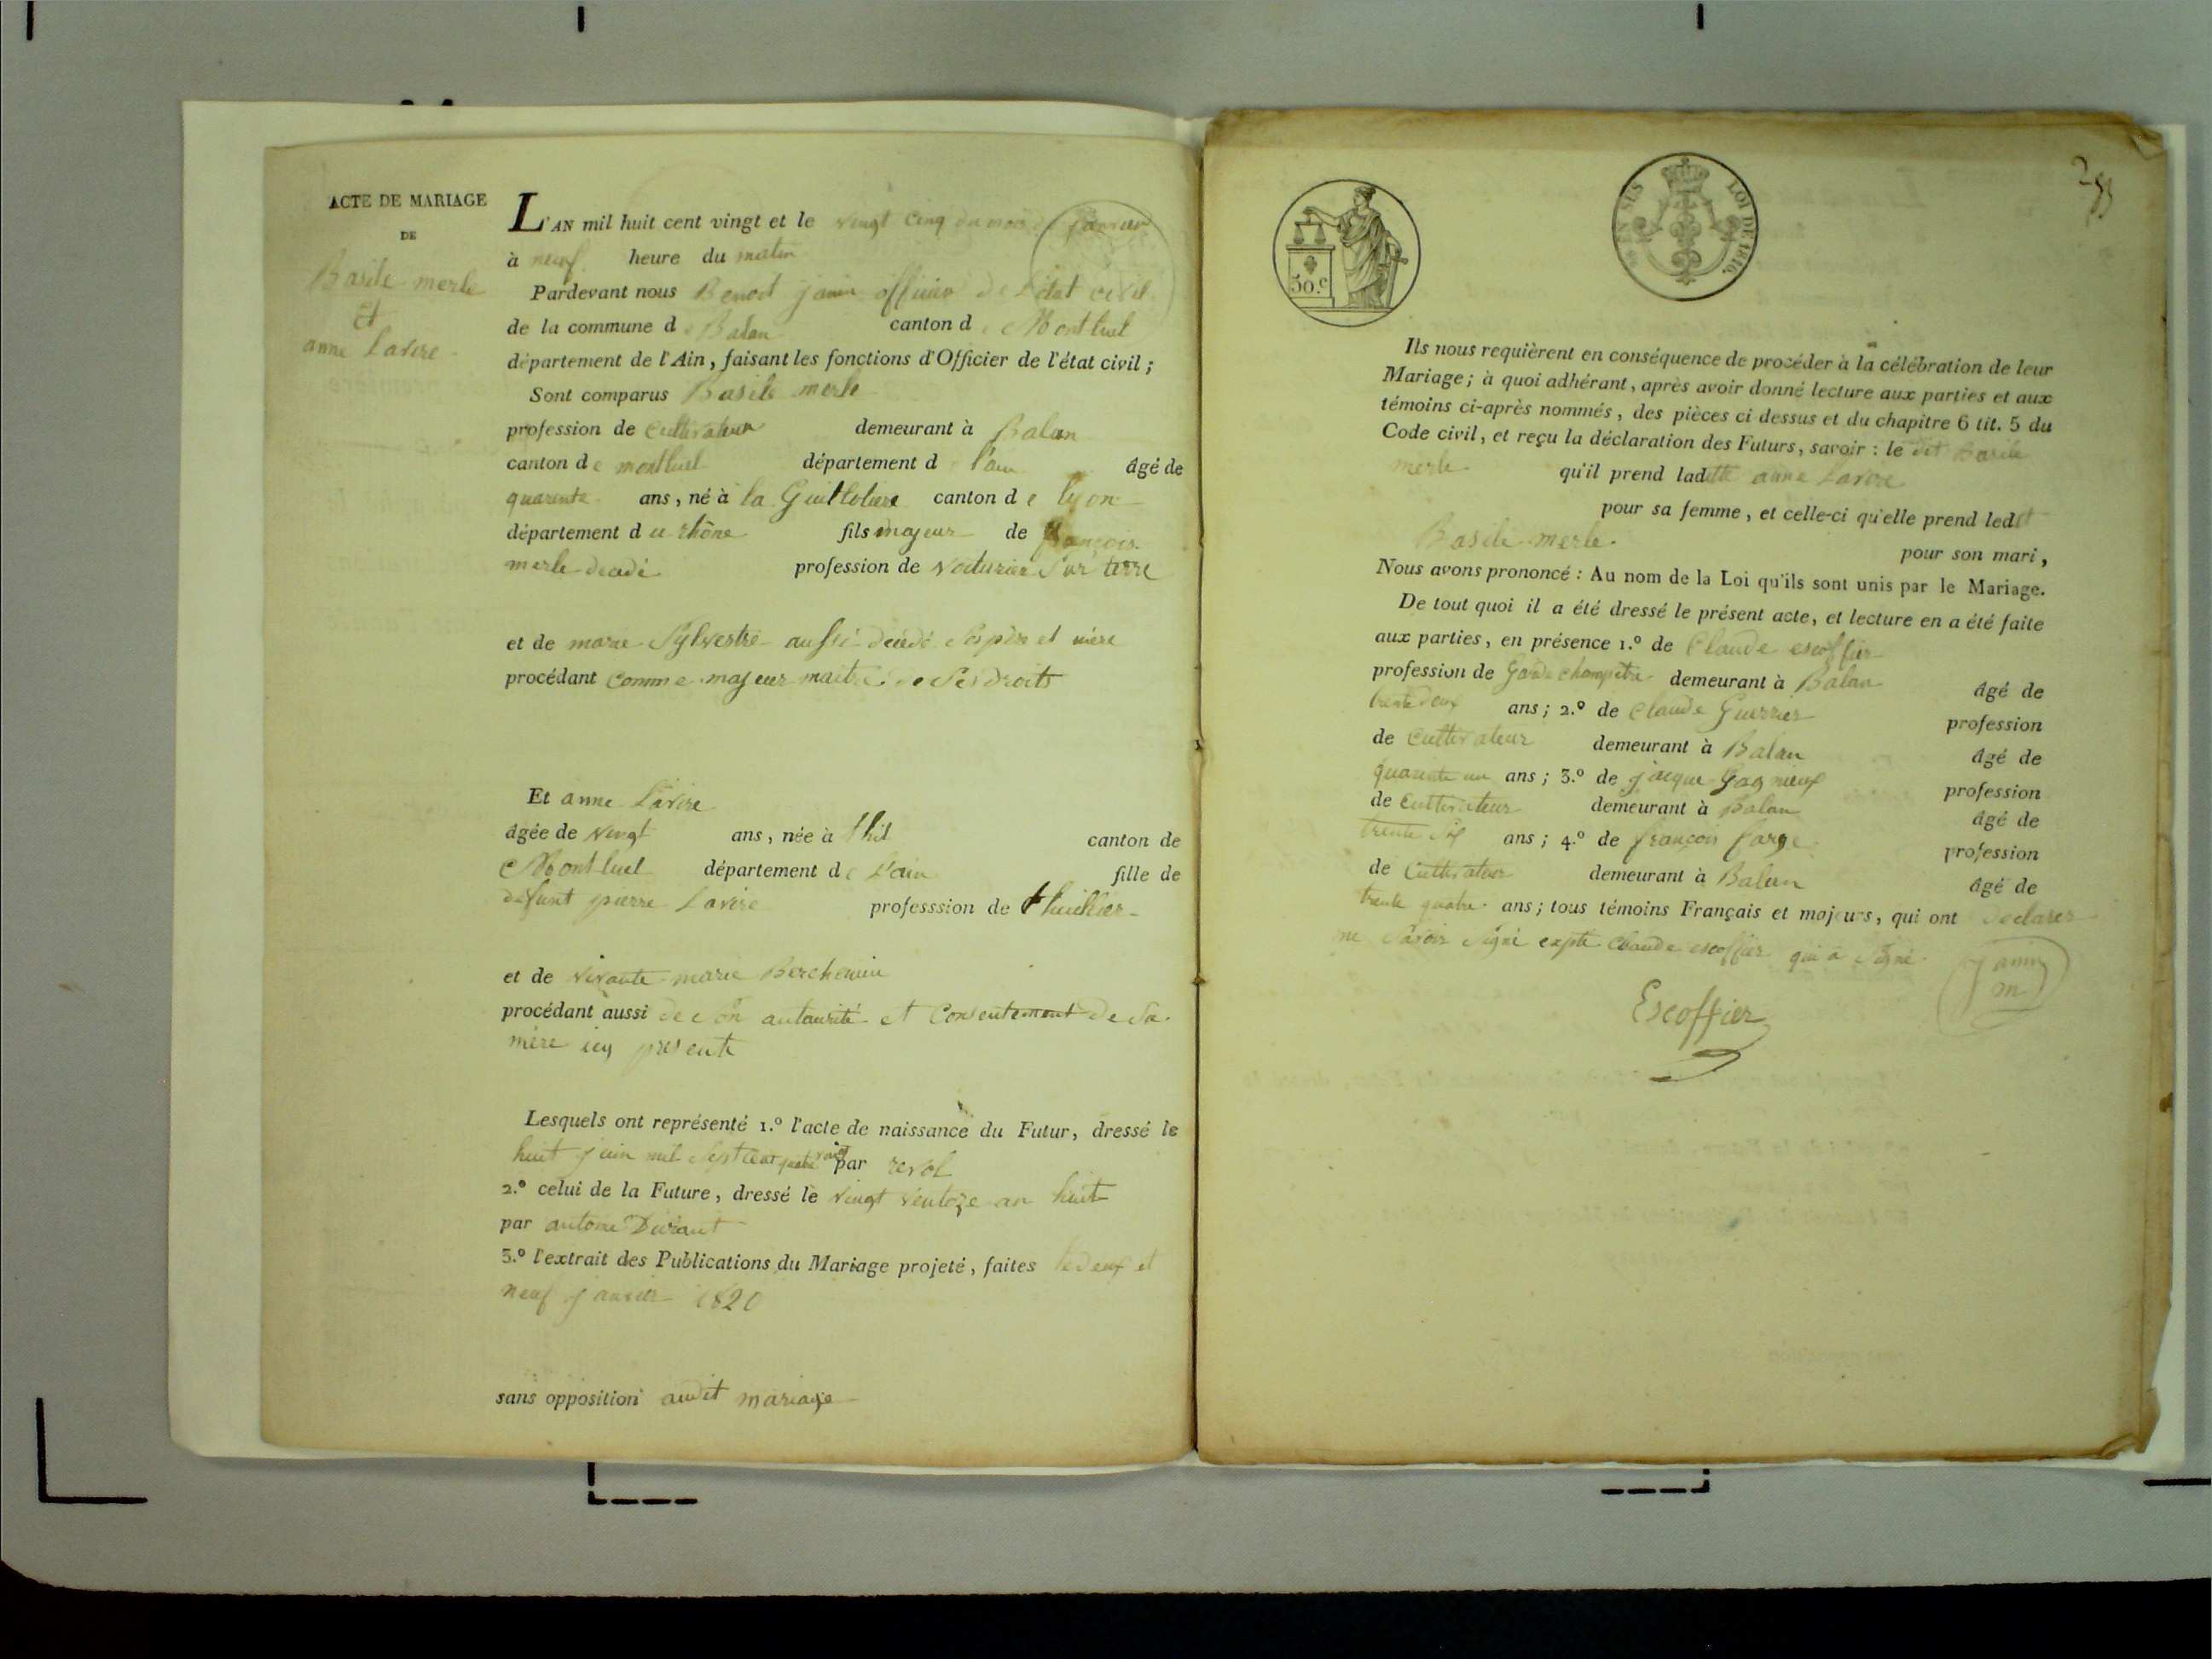 ACTE DE MARIAGE
DE
Basile merle
Et
anne Lavire
L'AN mil huit cent vingt et le vingt cinq du mois de janvier
à neuf heure du matin
Pardevant nous Benoit janin officier de l'état civil
de la commune de Balan canton de Montluel
département de l'Ain, faisant les fonctions d'Officier de l'état civil;
Sont comparus Basile merle
profession de Cultivateur demeurant à Balan
canton de montluel département de l'ain âgé de
quarente ans, né à la Guillotiere canton de lyon
département du rhône fils majeur de françois
merle decedé profession de voiturier sur terre
et de marie Sylvestre aussi decedé ses père et mère
procédant comme majeur maitre de ses droits
Et anne Lavire
âgée de vingt ans, née à thil canton de
Montluel département de L'ain fille de
defunt pierre Lavire professsion de thuillier
et de vivante marie Berchemin
procédant aussi de son autaurité et Consentement de sa
mère icy presente
Lesquels ont représenté 1.º l'acte de naissance du Futur, dressé le
huit juin mil sept cent quatre vingt par revol
2.º celui de la Future, dressé le vingt ventoze an huit
par antoine Durant
3.º l'extrait des Publications du Mariage projeté, faites le deux et
neuf janvier 1820
sans opposition audit mariage
50.c
LOI DE 1816.
Ils nous requièrent en conséquence de procéder à la célébration de leur
Mariage; à quoi adhérant, après avoir donné lecture aux parties et aux
témoins ci-après nommés, des pièces ci dessus et du chapitre 6 tit. 5 du
Code civil, et reçu la déclaration des Futurs, savoir : le dit Basile
merle qu'il prend laditte anne Lavire
pour sa femme, et celle-ci qu'elle prend ledit
Basile merle pour son mari,
Nous avons prononcé : Au nom de la Loi qu'ils sont unis par le Mariage.
De tout quoi il a été dressé le présent acte, et lecture en a été faite
aux parties, en présence 1.º de Claude escoffier
profession de Garde champetre demeurant à Balan âgé de
trente deux ans; 2.º de Claude Guerrier profession
de Cultivateur demeurant à Balan âgé de
quarente un ans; 3.º de jacque Gagnieux profession
de Cultivateur demeurant à Balan âgé de
trente six ans; 4.º de françois farge profession
de Cultivateur demeurant à Balan âgé de
trente quatre ans; tous témoins Français et majeurs, qui ont declarer
ne savoir signé expté Claude escoffier qui a signé
janin
m
Escoffier